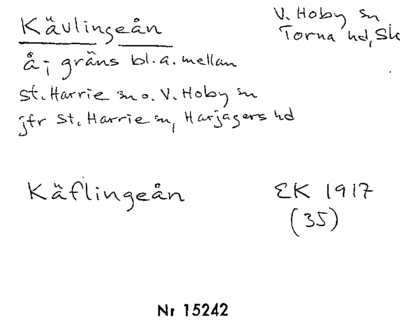 Kävlingeån
V. Hoby sn
Torna hd, Sk
å; gräns bl. a. mellan
St. Harrie sn o. V. Hoby sn
jfr St. Harrie sn, Harjagers hd
Käflingeån
EK 1917
(35)
Nr 15242